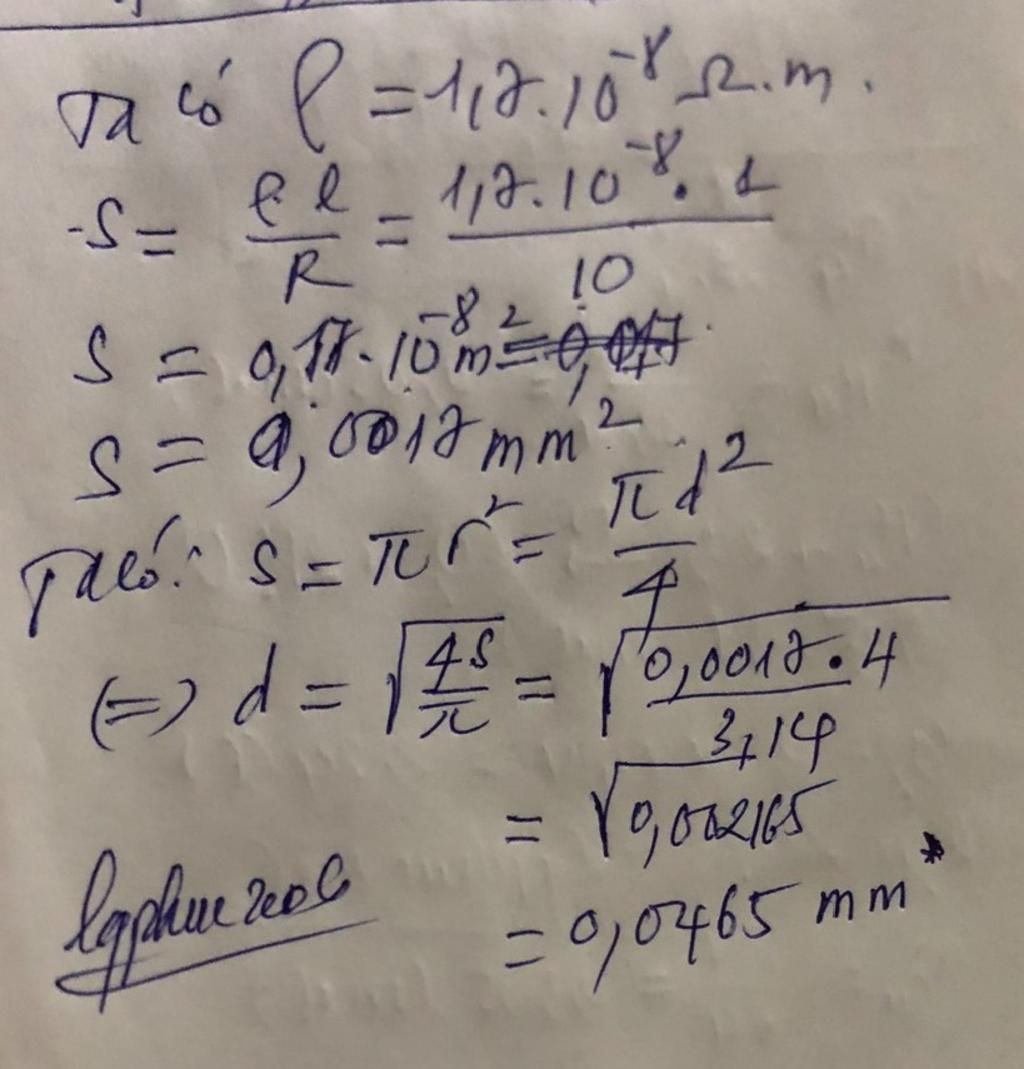 Ta có ρ = 1,7.10⁻⁸ Ω.m.
-S = ρ.l/R = 1,7.10⁻⁸.1/10
S = 0,17.10⁻⁸m²
S = 0,0017mm²
Ta có: S = πr² = πd²/4
(=) d = √(4S/π) = √(0,0017.4/3,14)
= √0,002165
= 0,0465 mm
lqphuc2006